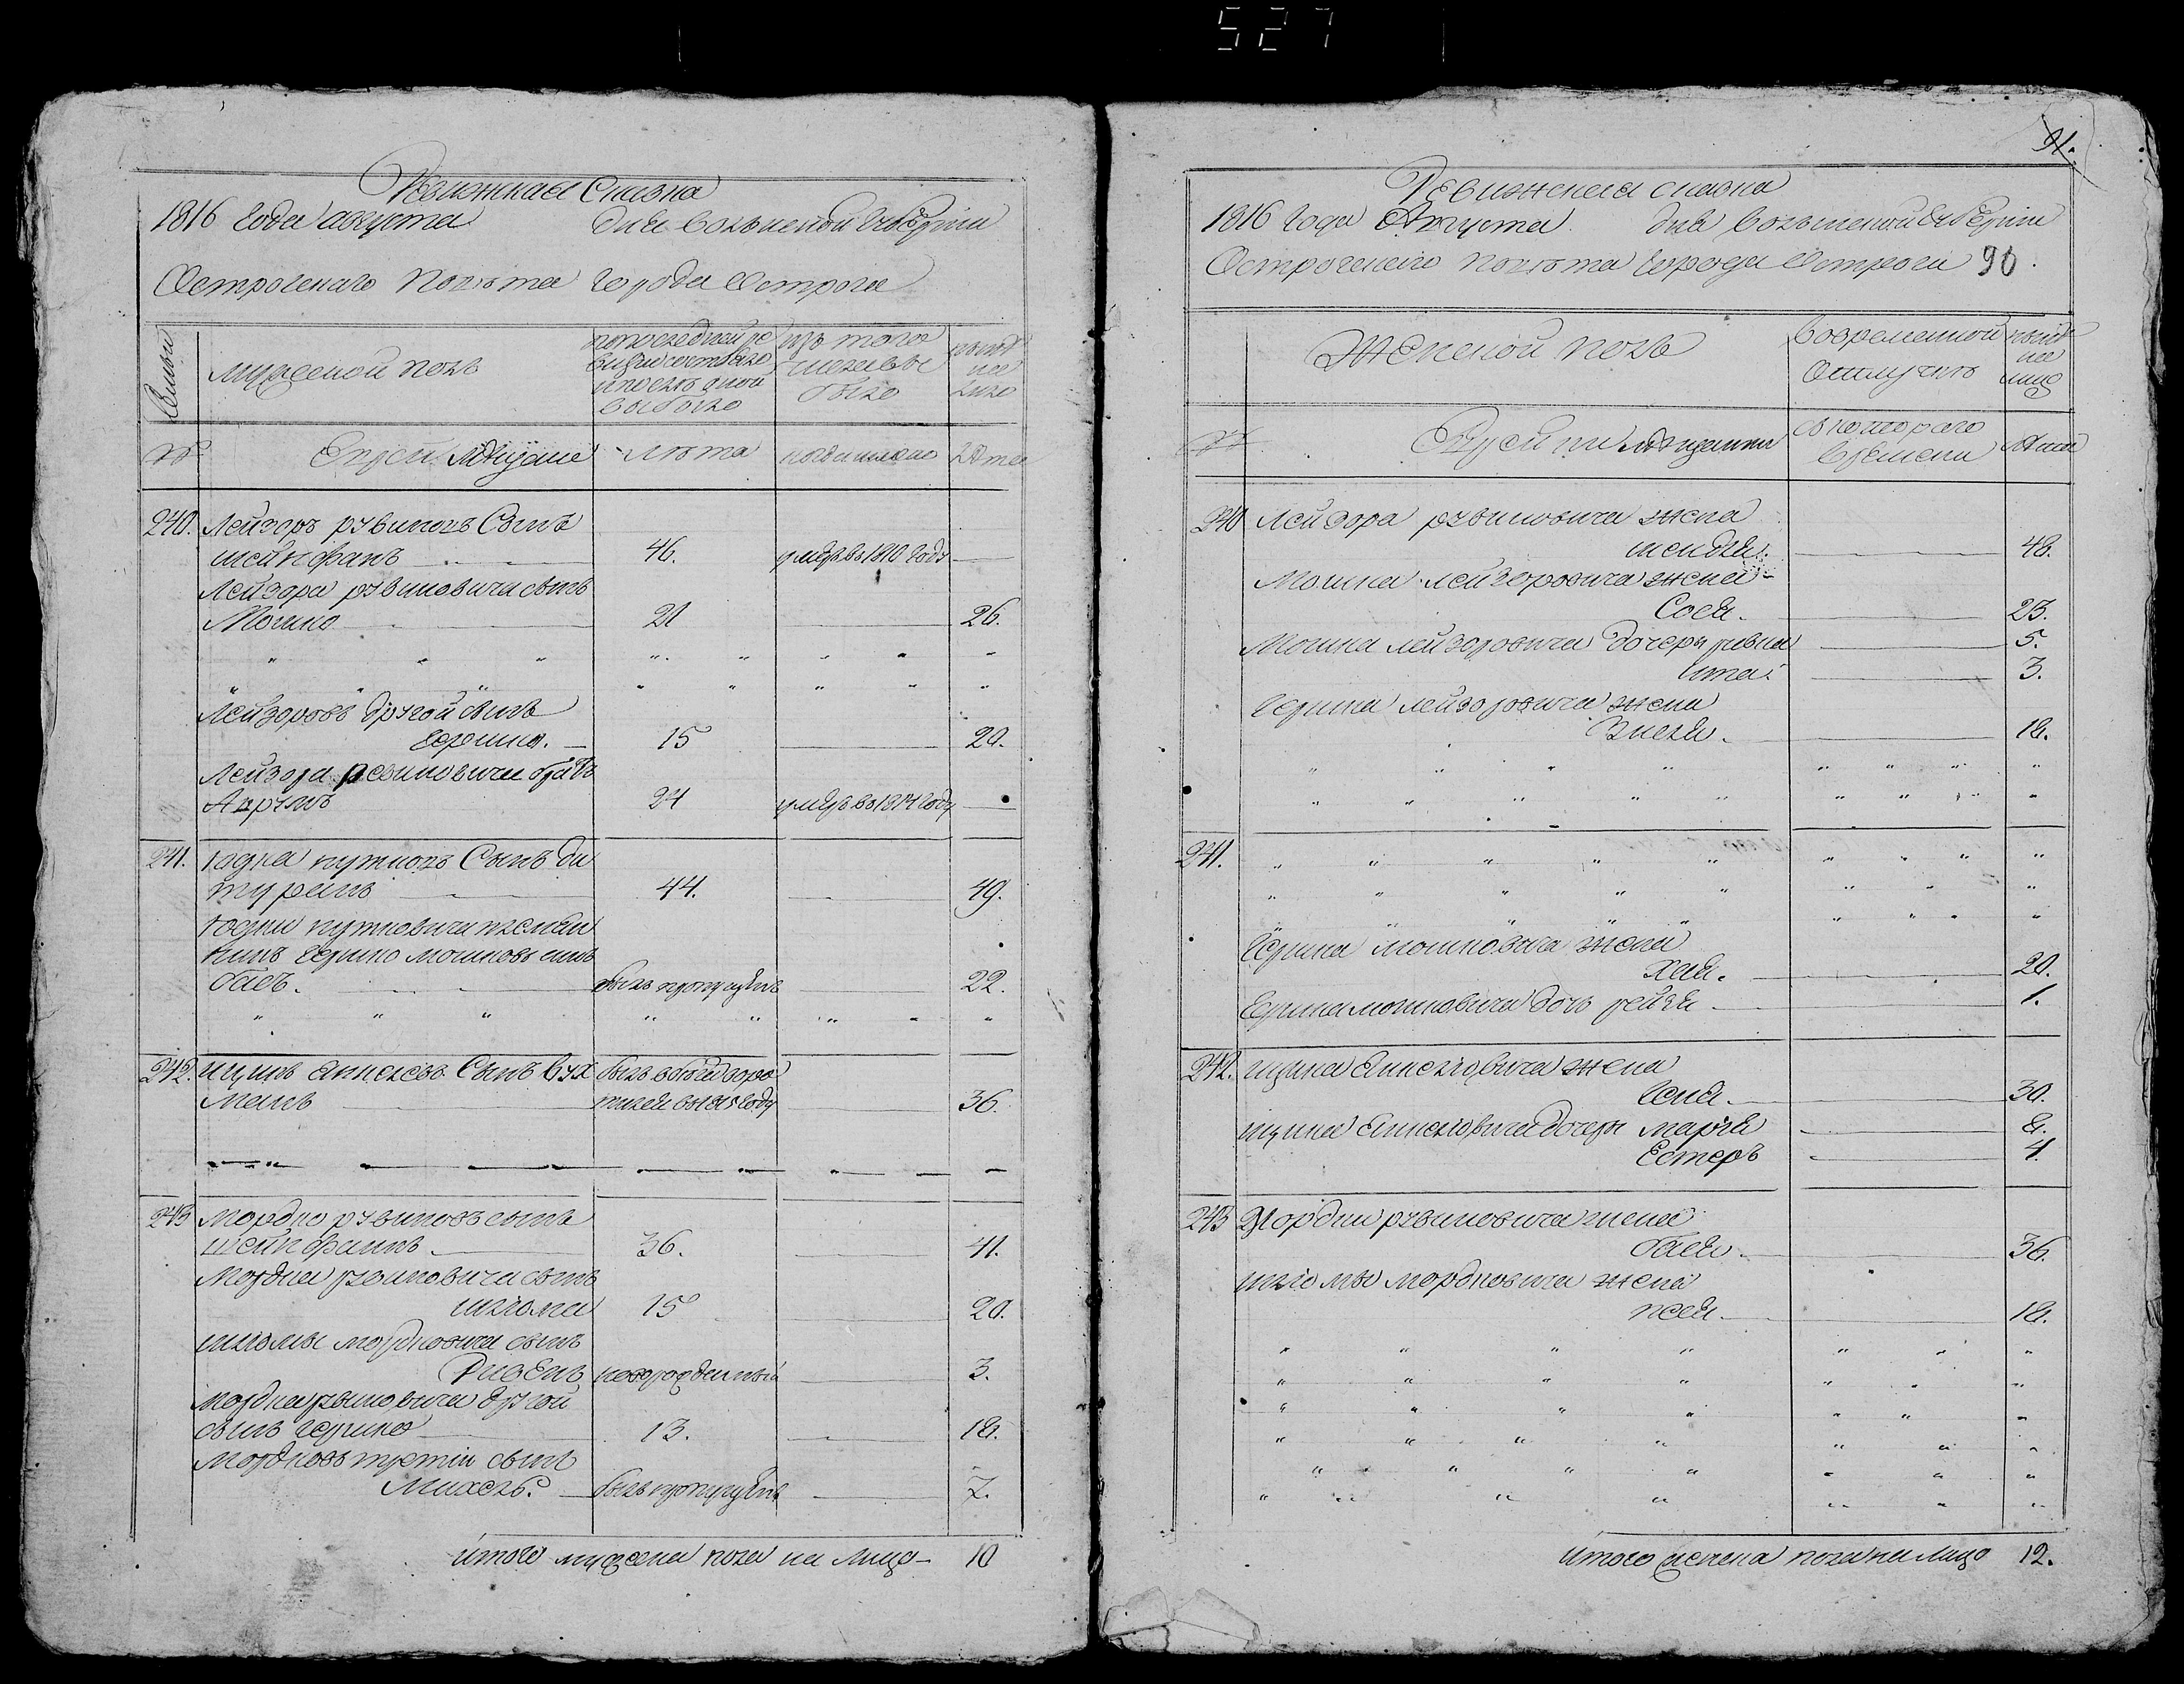 527
Ревижская Сказка
1816 Года августа дня Волынской Губернии
Острогского Повета города Острога
Семьи
мужеской полъ
по последней ре
визии состояло
и после оной
выбыло
изъ того
числа вы
было
ныне
на
лицо
№
Евреи Мещане
Лета
когда именно
Лета
240. Лейзеръ рувиновъ Сынъ
шейнфанъ 46. умеръ въ 1810 году
Лейзора рувиновича сынъ
Мошко 21 26.
Лейзоровъ другой сынъ
Гершко. 15 20.
Лейзора рувиновича братъ
Аврумъ 24 умеръ въ 1814 году
241. Юдка нутковъ Сынъ
44. 49.
Юдки нутковича племян
никъ Гершко мошковъ сынъ
былъ пропущенъ 22.
242. ицикъ Янкелевъ Сынъ
въ 1815 году 36.
243 мордко рувиновъ сынъ
шейнфанъ 36. 41.
Мордка рувиновича сынъ
шлома 15 20.
шломы мордковича сынъ
Рувенъ новорожденный 3.
мордка рувиновича другой
сынъ гершко 13. 18.
Мордковъ третий сынъ
Михель. былъ пропущенъ 7.
итого мужеска пола на лицо 10
91.
Ревижская сказка
1816 Года Августа дня Волынской Губернии
Острогского повета города Острога 90.
Женской полъ
Во временной
отлучке
ныне
на
лицо
№
Еврейки мещанки
съ котораго
времени
Лета
240 Лейзора рувиновича жена
шендля. 48.
Мошка лейзоровича жена
Сося. 23.
Мошка лейзоровича дочери ривка 5.
ита. 3.
Гершка лейзоровича жена
18.
241.
Гершка мошковича жена
хая. 20.
Гершка мошковича дочь рейзя 1.
242. ицика Янкелевича жена
Геня. 30.
ицика Янкелевича дочери маръя 8.
Естеръ 4
243 Мордки рувиновича жена
бася. 36
шломы мордковича жена
песя. 18.
итого женска пола на лицо 12.